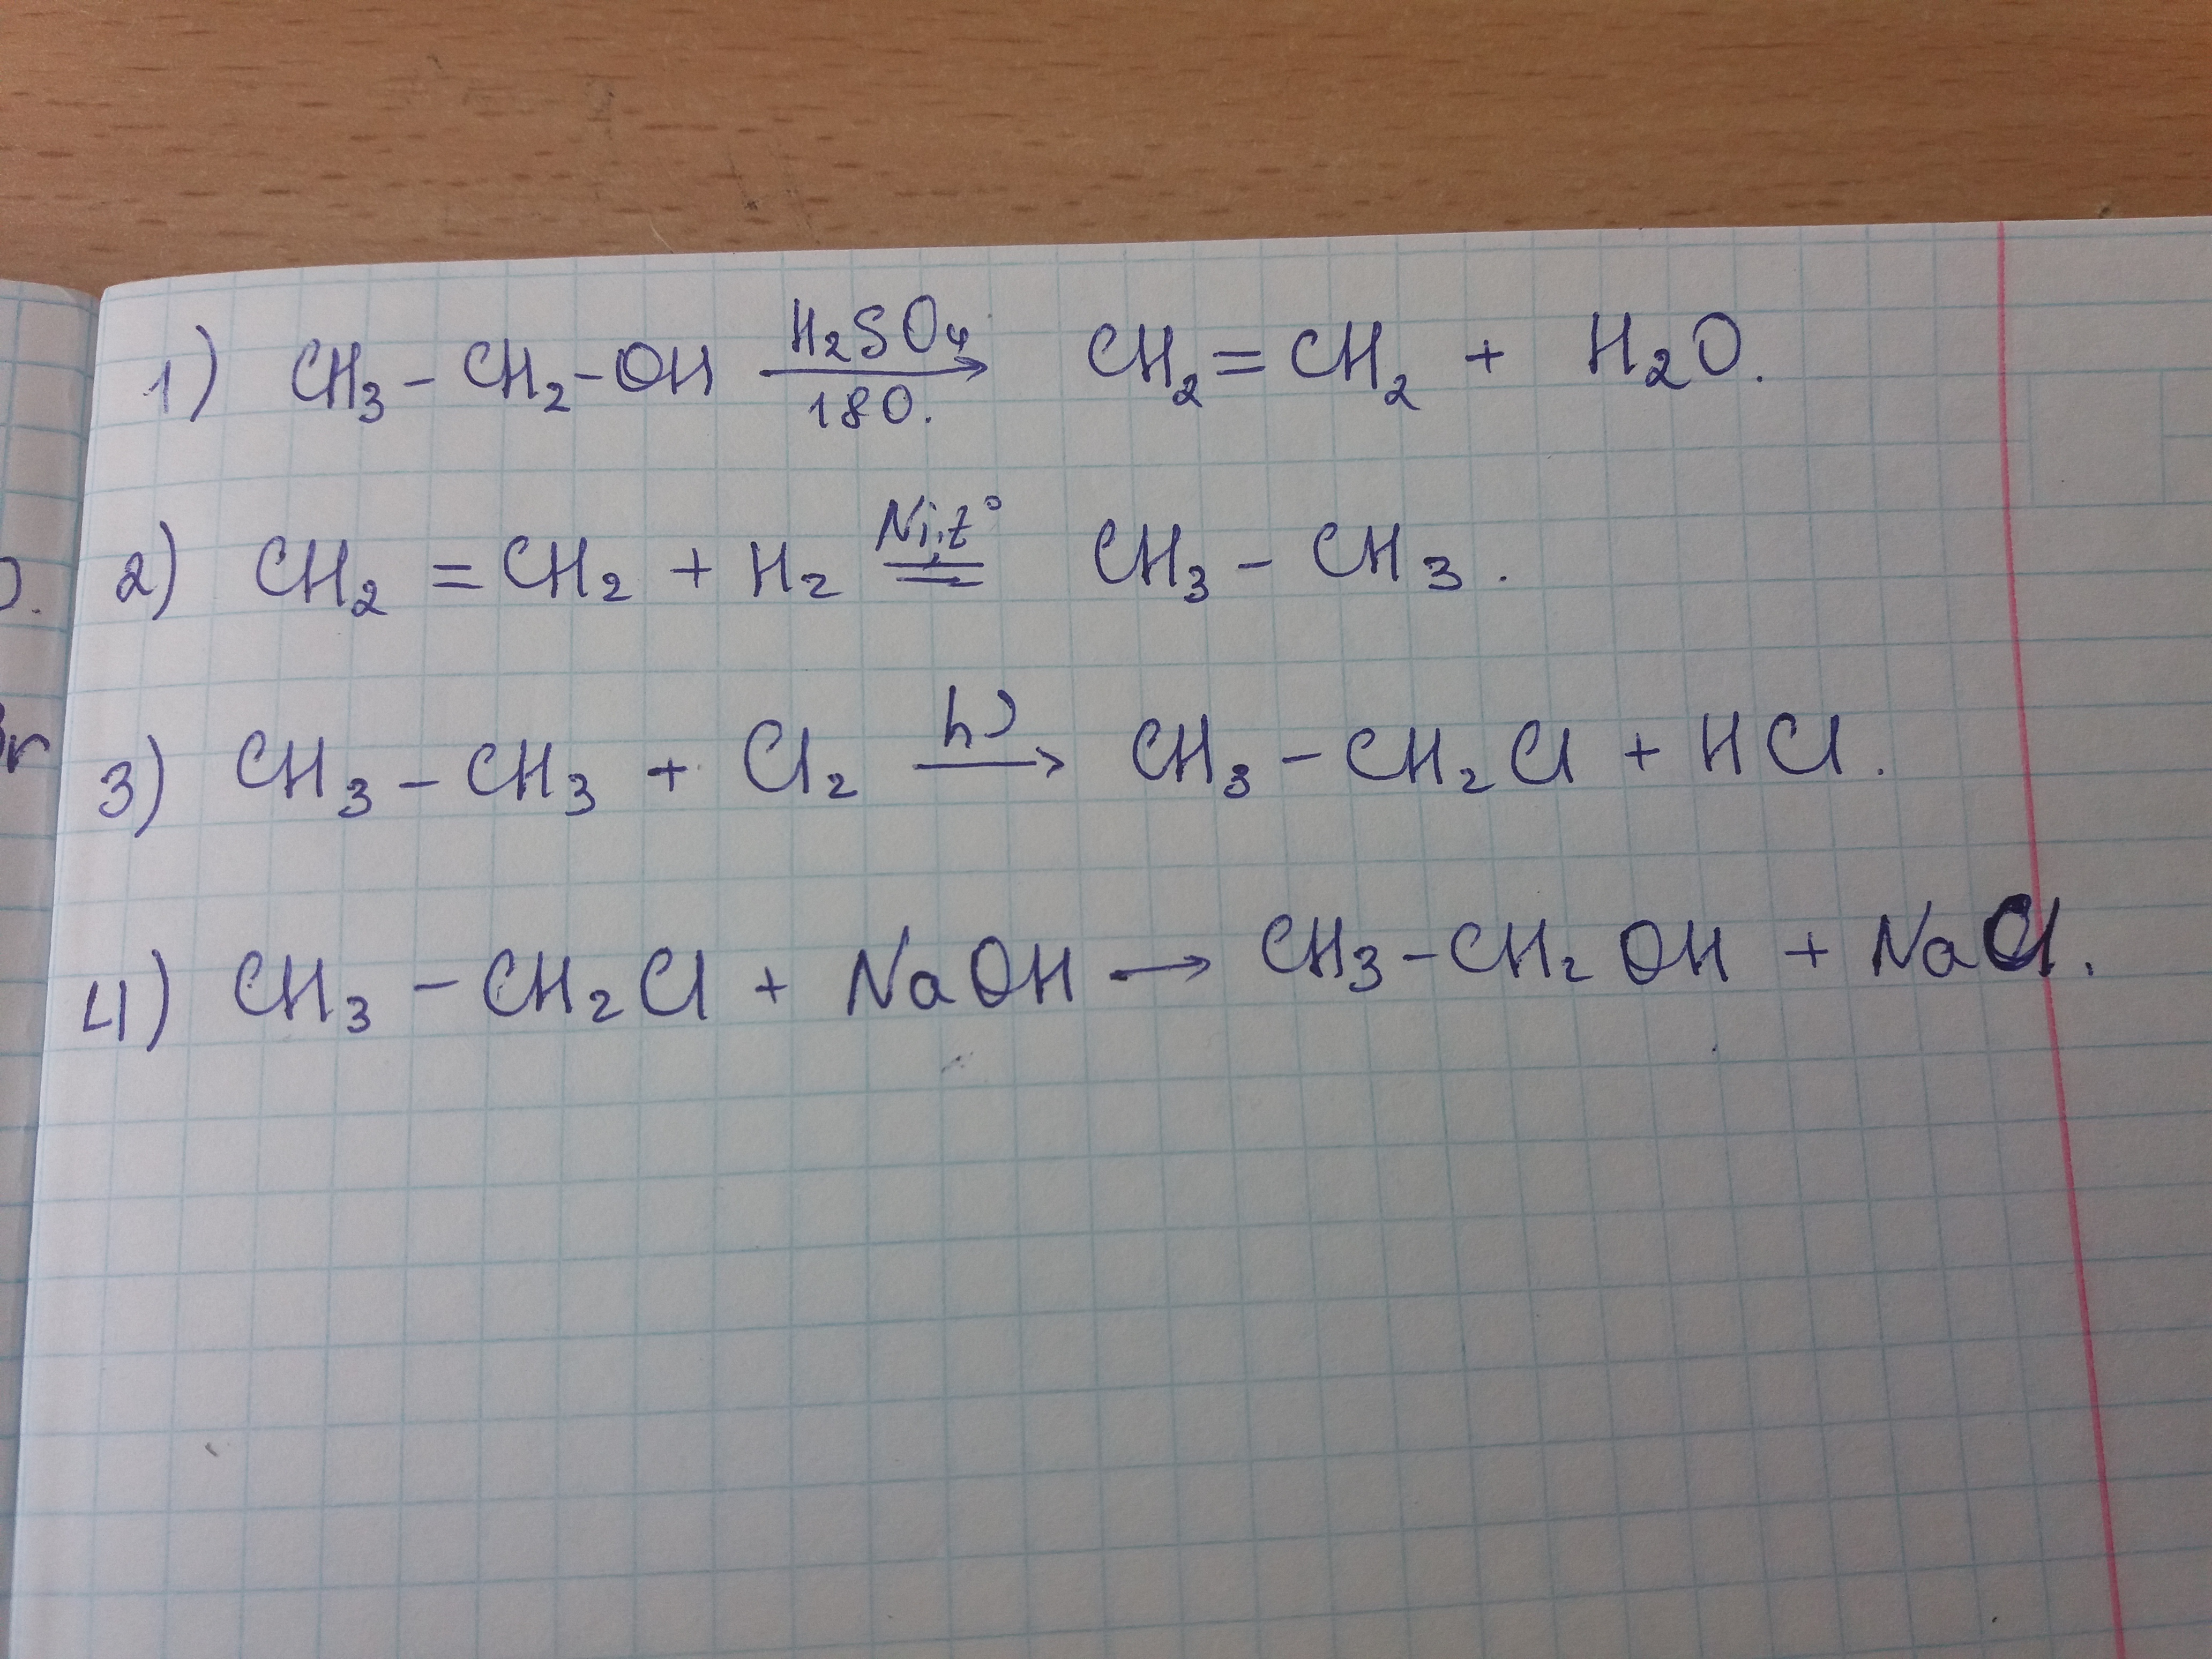 1) CH₃ – CH₂ – OH H₂SO₄ → 180. CH₂ = CH₂ + H₂O.
2) CH₂ = CH₂ + H₂ Ni, t° ⇌ CH₃ – CH₃.
3) CH₃ – CH₃ + Cl₂ hν → CH₃ – CH₂Cl + HCl.
4) CH₃ – CH₂Cl + NaOH → CH₃ – CH₂OH + NaCl.